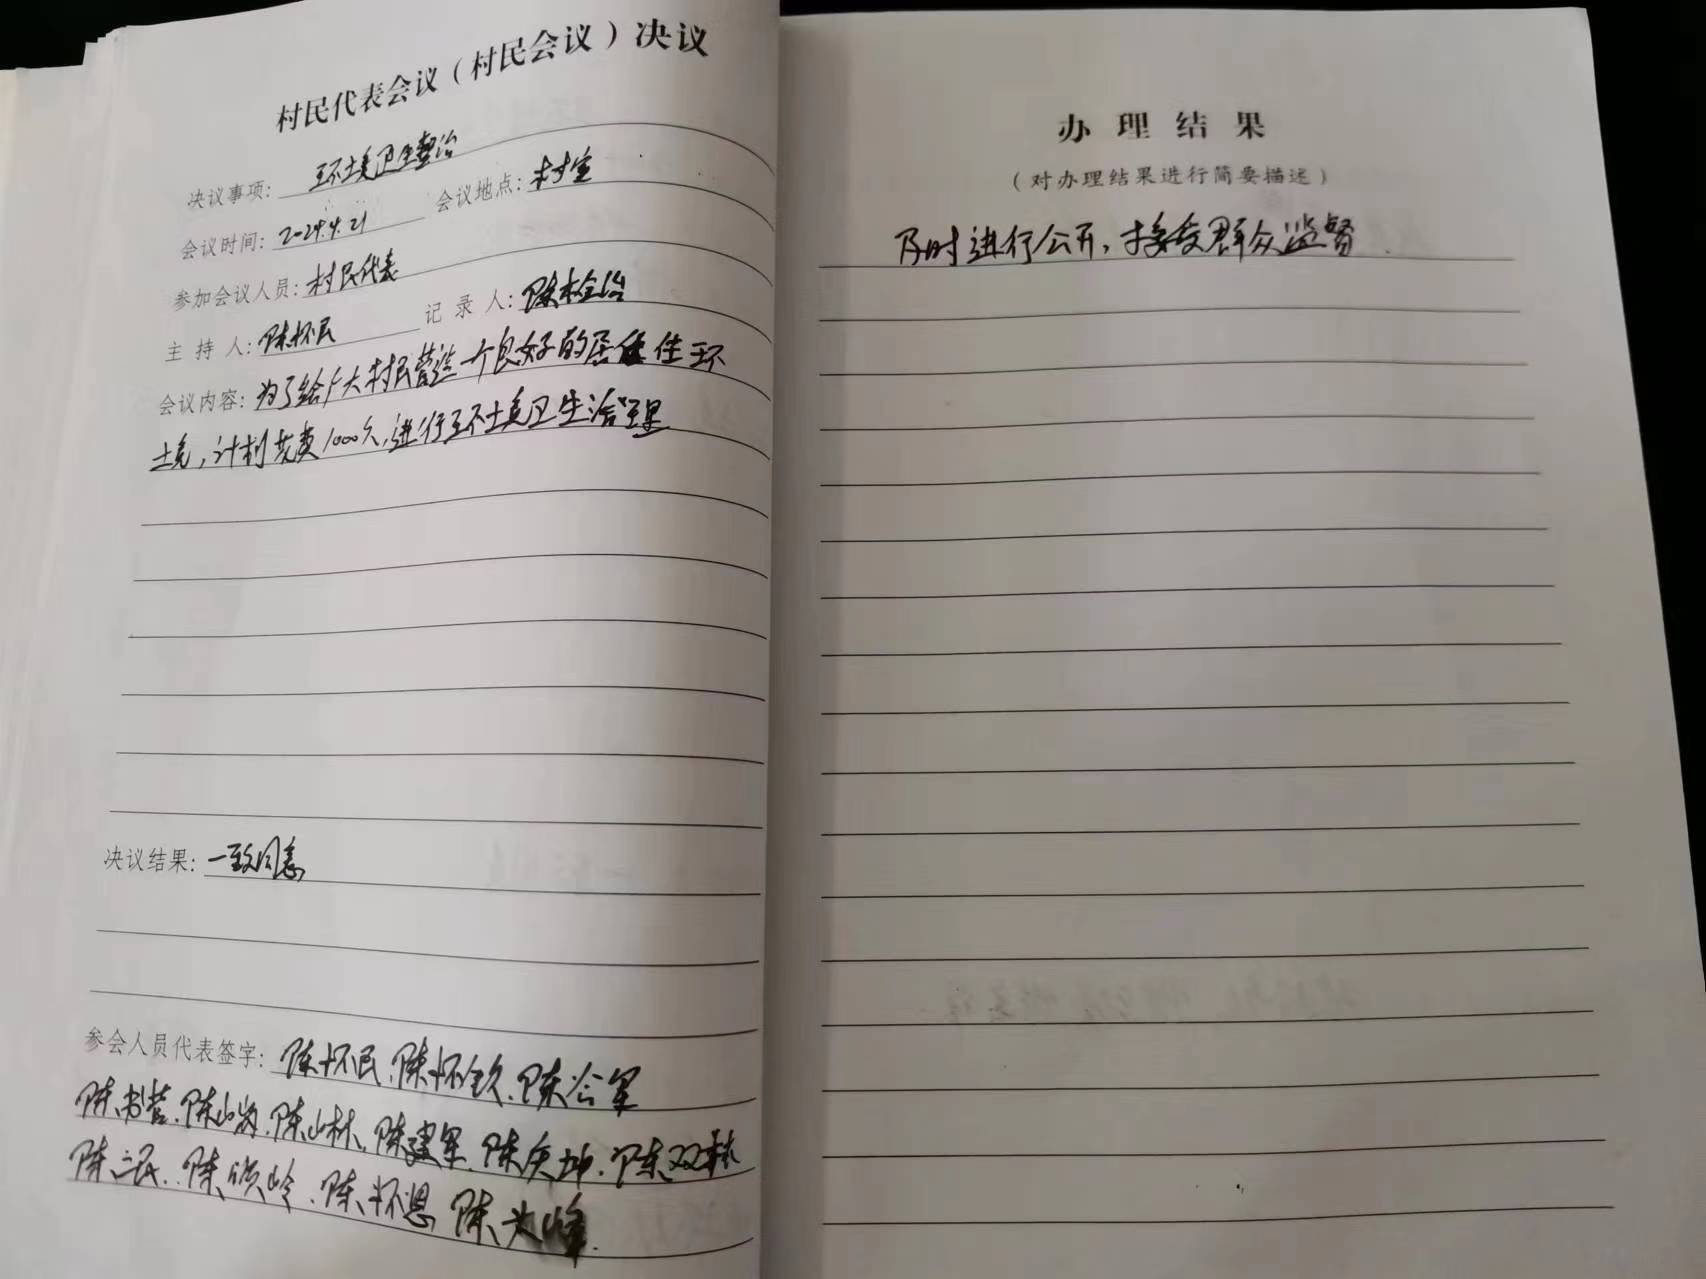 村民代表会议（村民会议）决议
决议事项: 环境卫生整治
会议时间: 2024.4.21 会议地点: 村室
参加会议人员: 村民代表
主持人: 陈怀民 记录人: 陈栓治
会议内容: 为了给广大村民营造一个良好的居住环
境,计划花费1000久,进行环境卫生治理
决议结果: 一致同意
参会人员代表签字: 陈怀民.陈怀钦.陈公军
陈书营.陈山.陈山林.陈建军.陈庆坤.陈双林
陈二民.陈岭.陈怀恩 陈峰.
办理结果
（对办理结果进行简要描述）
及时进行公开,接受群众监督.